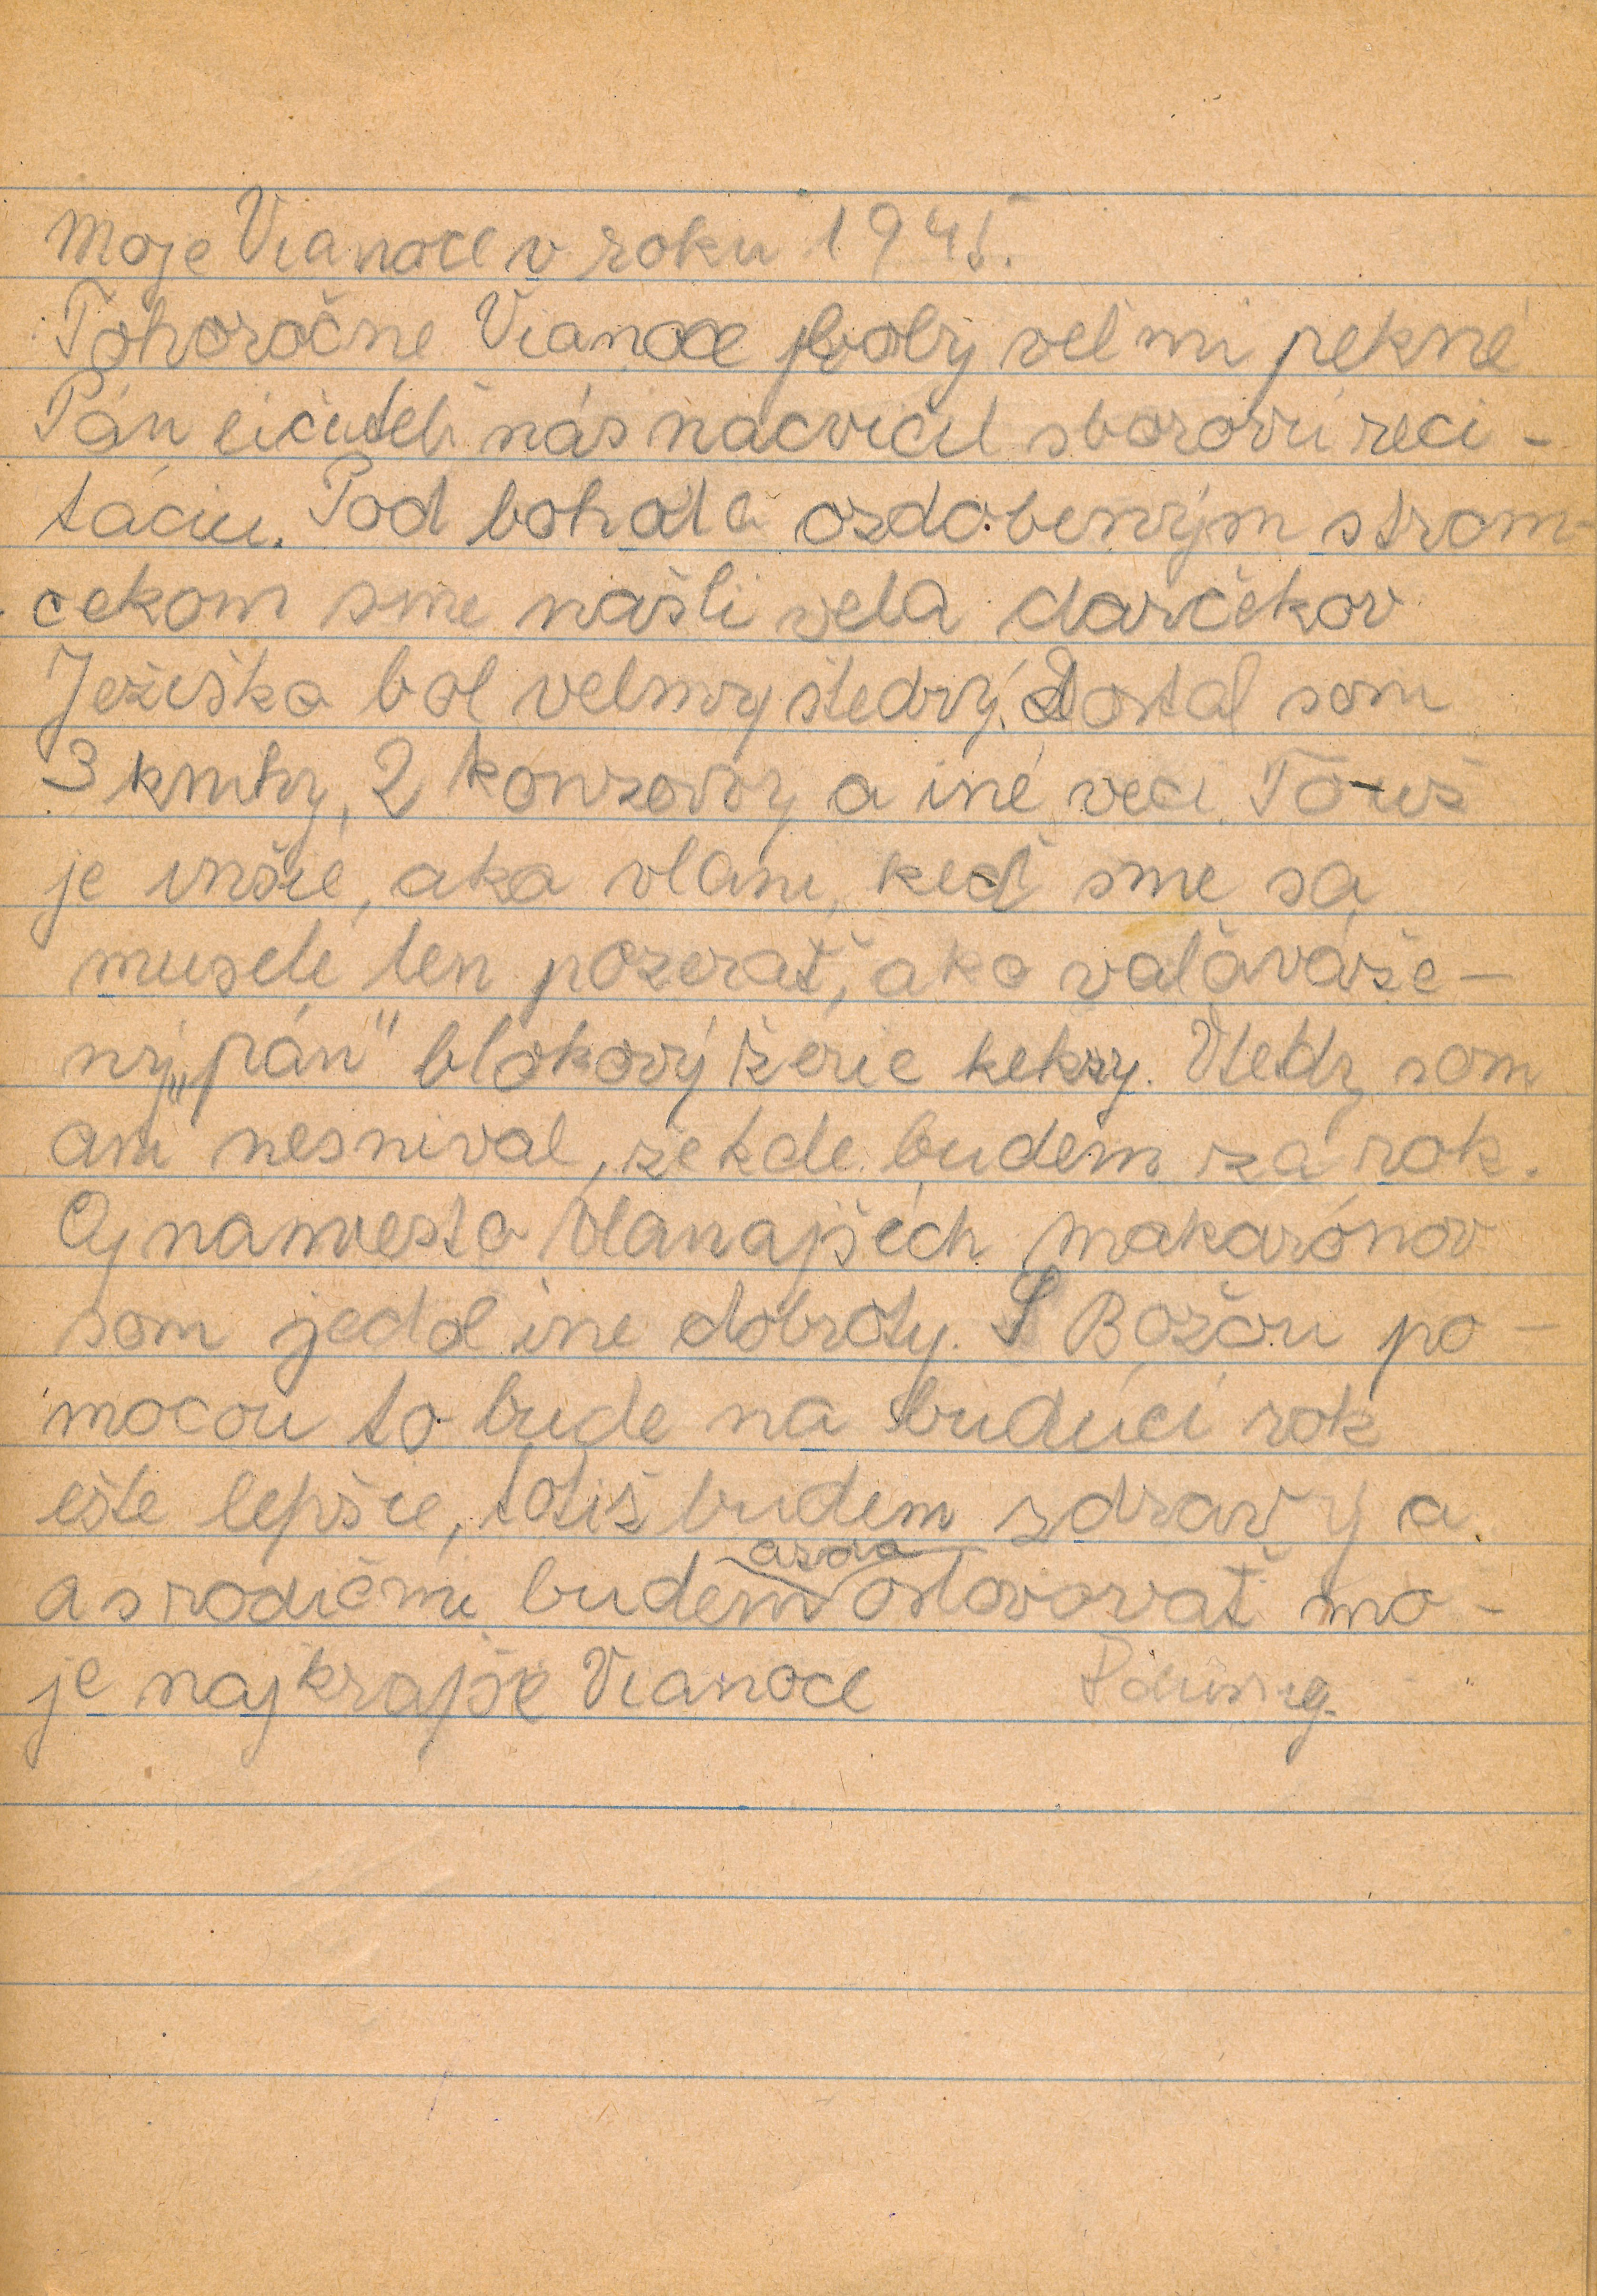 Moje Vianoce v roku 1945.
Tohoročne Vianoce boly veľmi pekné
Pán učiteľ nás nacvičil sborovú reci-
táciu. Pod bohato ozdobeným strom-
cekom sme našli vela darčekov
Ježiško bol velmy štedrý. Dostal som
3 knihy, 2 konzervy a iné veci. To už
je inšie, ako vlani, keď sme sa
museli len pozerať, ako
ný „pán" blokový žerie keksy. Vtedy som
ani nesnival, že kde budem za rok.
Aj namiesto vlanajších makarónov
som jedol ine dobroty. S Božou po-
mocou to bude na budúci rok
ešte lepšie, totiš budem zdravý a
a s rodičmi budem azda oslovovať mo-
je najkrajše Vianoce